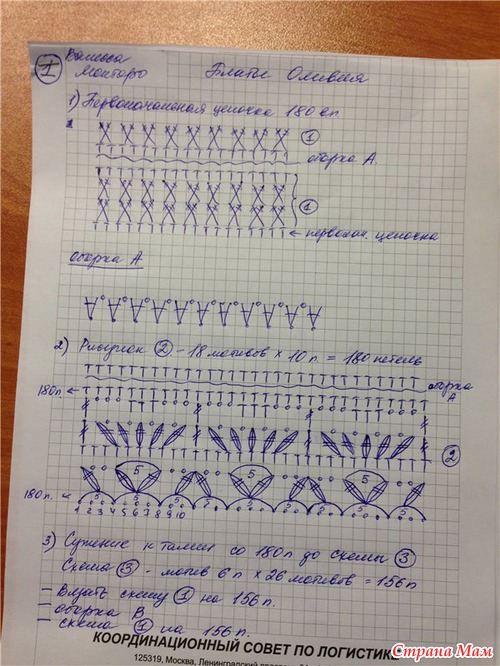 1 Ванесса
Монторо Платье Оливия
1) Первоначальная цепочка 180 вп.
1
оборка А.
1
← первонач. цепочка
оборка А
2) Рисунок 2 - 18 мотивов × 10 п = 180 петель
оборка
А
180п ←
2
5 5 5
180п. ←
5 5 5
1 2 3 4 5 6 7 8 9 10
3) Сужение к талии со 180п до схемы 3
Схема 3 - мотив 6 п × 26 мотивов = 156п
- Вязать схему 1 на 156 п.
- оборка В
- схема 1 на 156 п.
КООРДИНАЦИОННЫЙ СОВЕТ ПО ЛОГИСТИКЕ
125319, Москва, Ленинградский
Страна Мам